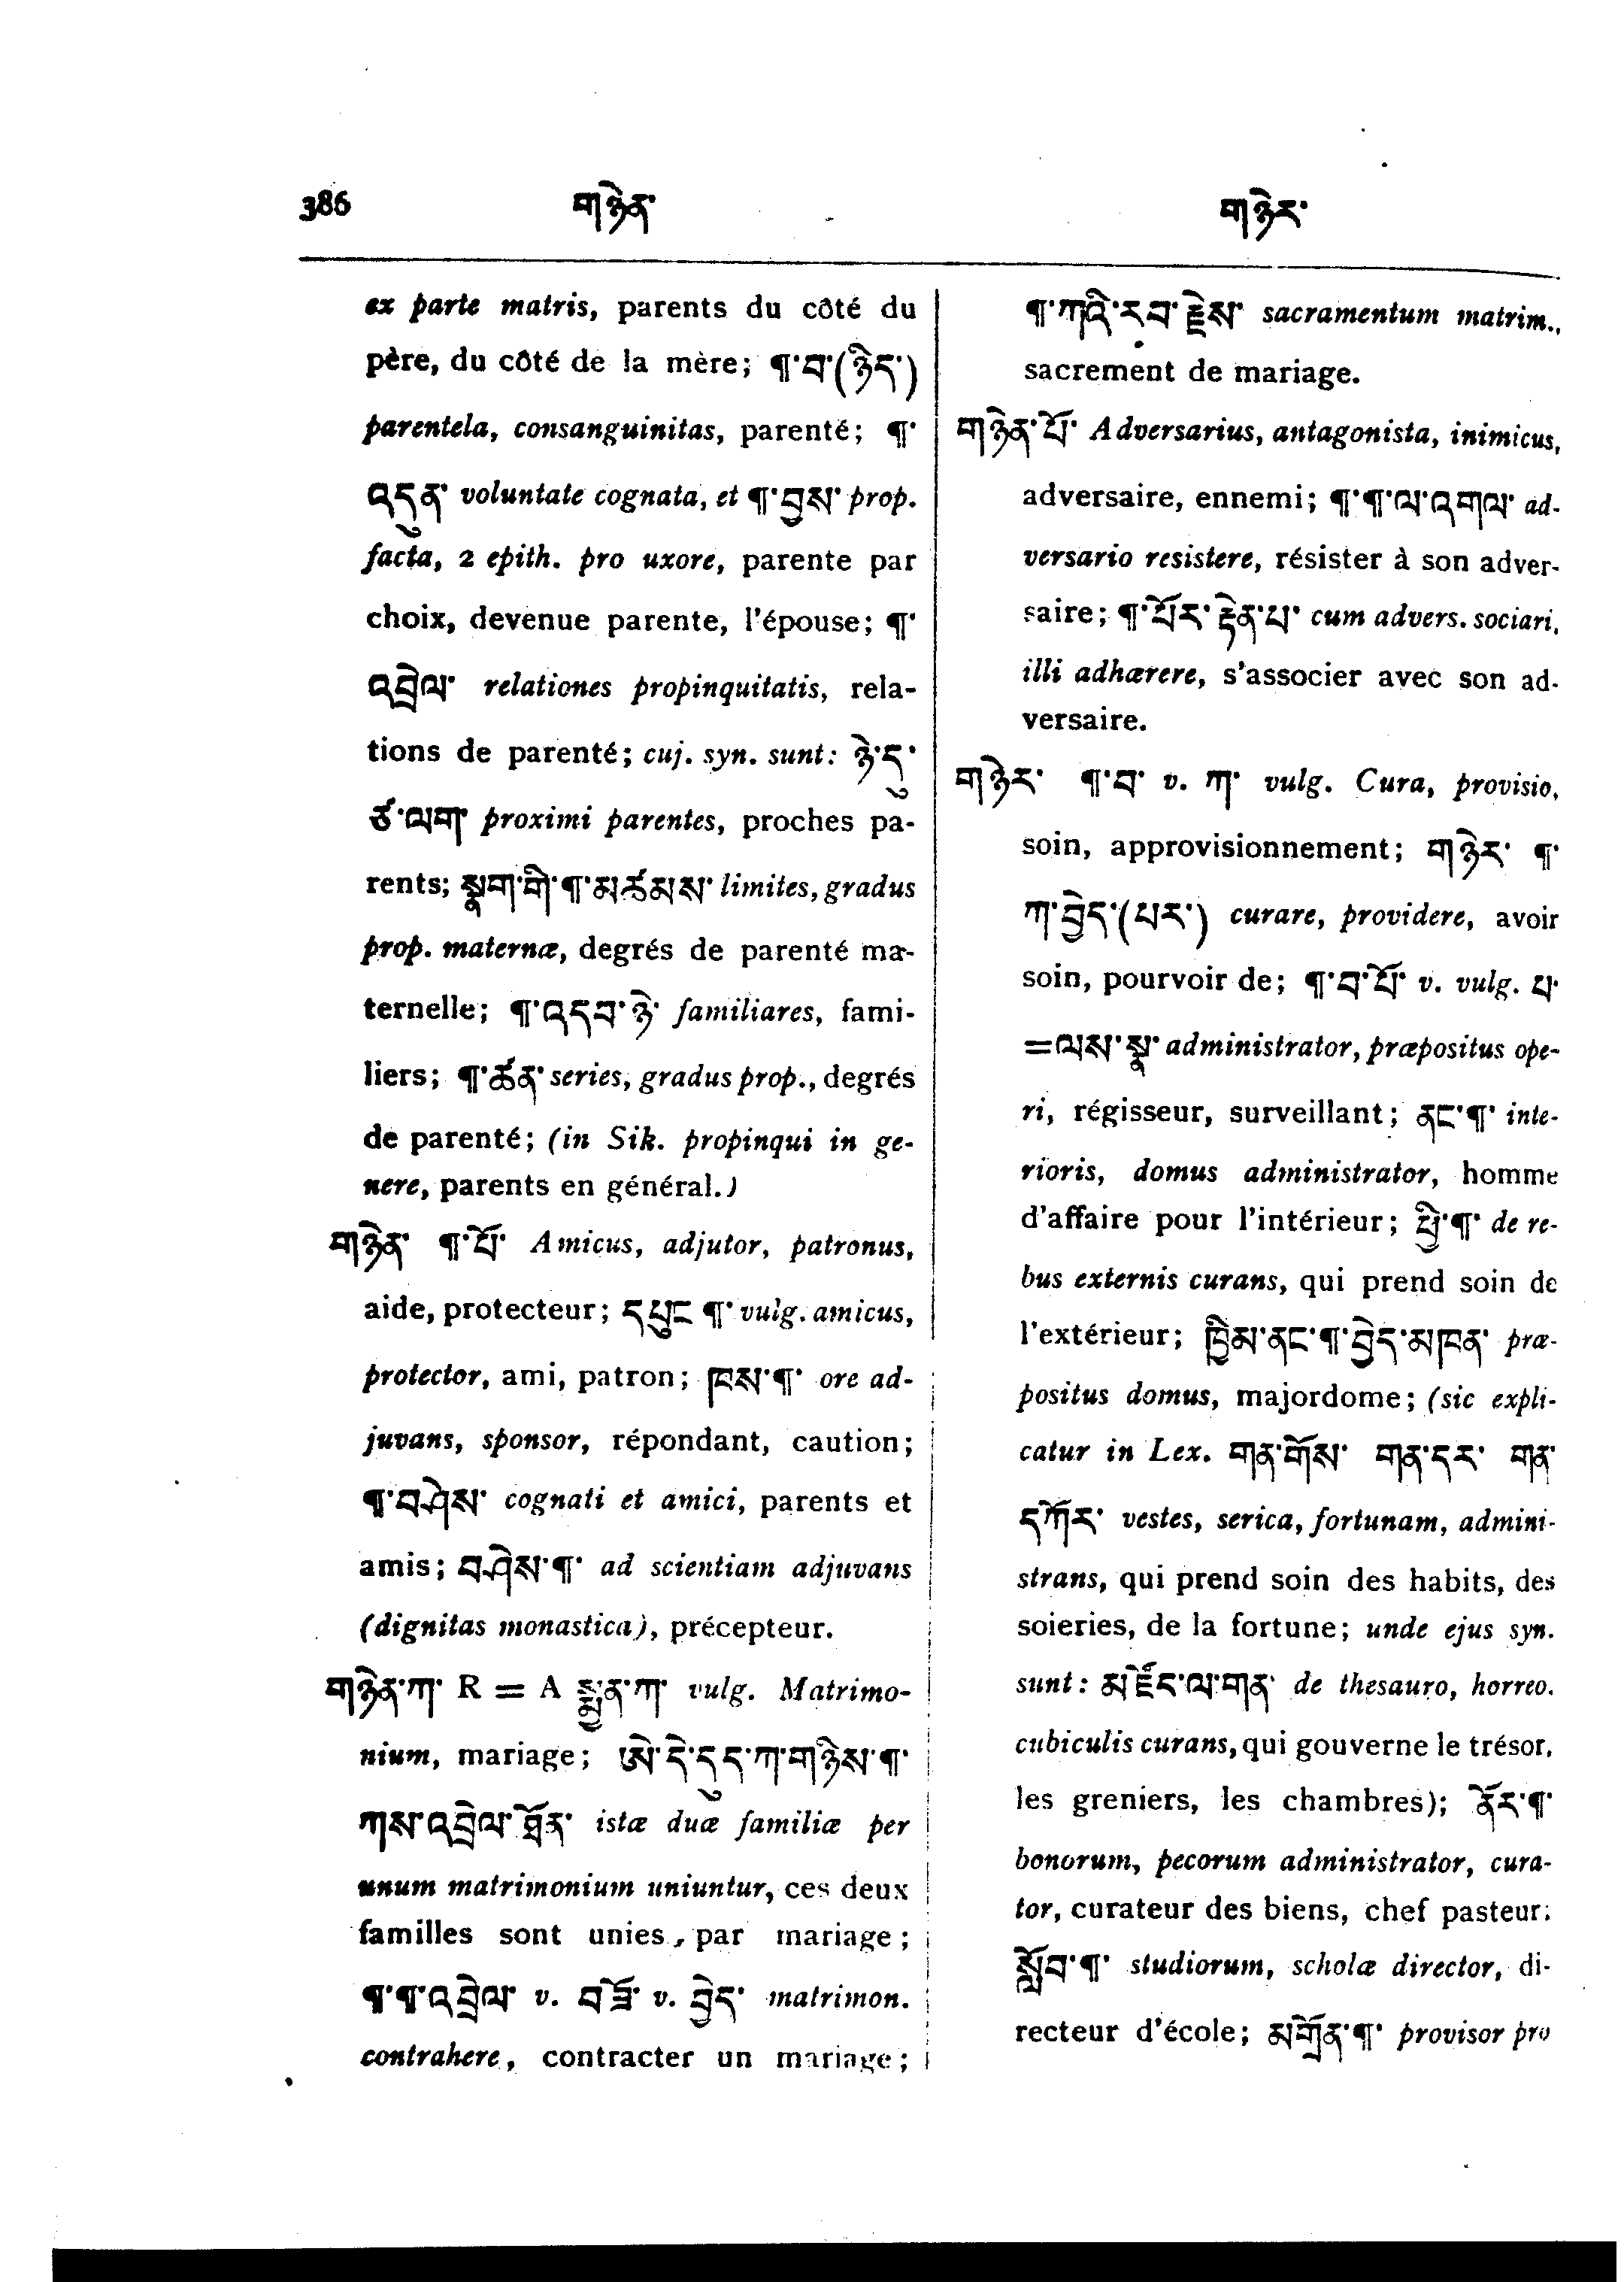 386 གཉེན་ གཉེར་
ex parte matris, parents du côté du
père, du côté de la mère; ¶་བ་(ཉིད་)
parentela, consanguinitas, parenté; ¶་
འདུན་ voluntate cognata, et ¶་བྱས་ prop.
facta, 2 epith. pro uxore, parente par
choix, devenue parente, l'épouse; ¶་
འབྲེལ་ relationes propinquitatis, rela-
tions de parenté; cuj. syn. sunt: ཉེ་དུ་
ཙ་ལག་ proximi parentes, proches pa-
rents; སྣག་གི་¶་མཚམས་ limites, gradus
prop. maternæ, degrés de parenté ma-
ternelle; ¶་འདབ་ཉེ་ familiares, fami-
liers; ¶་ཚན་ series, gradus prop., degrés
de parenté; (in Sik. propinqui in ge-
nere, parents en général.)
གཉེན་ ¶་པོ་ Amicus, adjutor, patronus,
aide, protecteur; དཔུང ¶་ vulg. amicus,
protector, ami, patron; ཁས་¶་ ore ad-
juvans, sponsor, répondant, caution;
¶་བཤེས་ cognati et amici, parents et
amis; བཤེས་¶་ ad scientiam adjuvans
(dignitas monastica), précepteur.
གཉེན་ཀ་ R = A སྨྱན་ཀ་ vulg. Matrimo-
nium, mariage; ཨེ་དེ་དུད་ཀ་གཉིས་¶་
ཀས་འབྲེལ་ཐོན་ istæ duæ familiæ per
unum matrimonium uniuntur, ces deux
familles sont unies, par mariage;
¶་¶་འབྲེལ་ v. བཟོ་ v. བྱེད་ matrimon.
contrahere, contracter un mariage;
¶་ཀའི་རབ་རྗེས་ sacramentum matrim.,
sacrement de mariage.
གཉེན་པོ་ Adversarius, antagonista, inimicus,
adversaire, ennemi; ¶་¶་ལ་འགལ་ ad-
versario resistere, résister à son adver-
saire; ¶་པོར་རྟེན་པ་ cum advers. sociari,
illi adhærere, s'associer avec son ad-
versaire.
གཉེར་ ¶་བ་ v. ཀ་ vulg. Cura, provisio,
soin, approvisionnement; གཉེར་ ¶་
ཀ་བྱེད་(པར་) curare, providere, avoir
soin, pourvoir de; ¶་བ་པོ་ v. vulg. པ་
=ལས་སྣ་ administrator, præpositus ope-
ri, régisseur, surveillant; ནང་¶་ inte-
rioris, domus administrator, homme
d'affaire pour l'intérieur; ཕྱི་¶་ de re-
bus externis curans, qui prend soin de
l'extérieur; ཁྱིམ་ནང་¶་བྱེད་མཁན་ præ-
positus domus, majordome; (sic expli-
catur in Lex. གན་གོས་ གན་དར་ གན་
དཀོར་ vestes, serica, fortunam, admini-
strans, qui prend soin des habits, des
soieries, de la fortune; unde ejus syn.
sunt: མཛོད་ལ་གན་ de thesauro, horreo,
cubiculis curans, qui gouverne le trésor,
les greniers, les chambres); ནོར་¶་
bonorum, pecorum administrator, cura-
tor, curateur des biens, chef pasteur;
སློབ་¶་ studiorum, scholæ director, di-
recteur d'école; མགྲོན་¶་ provisor pro